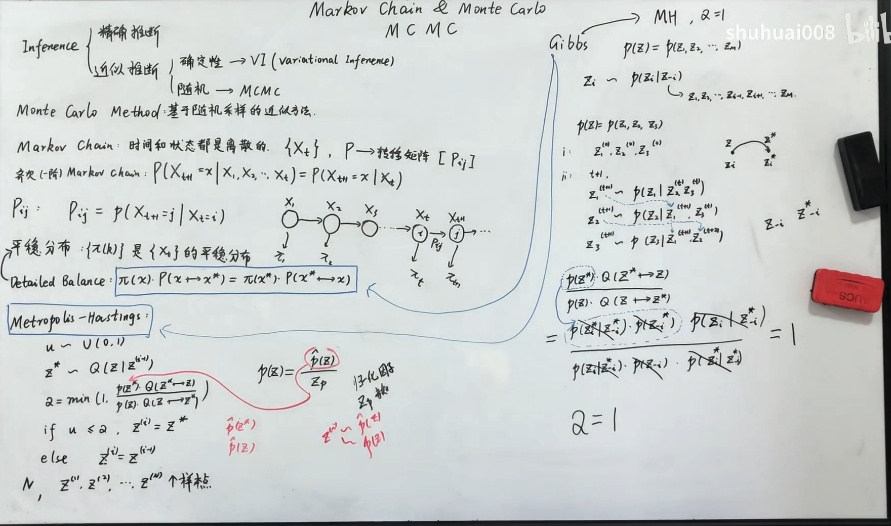 Markov Chain & Monte Carlo
MCMC
Inference { 精确推断
近似推断 { 确定性 → VI (variational Inference)
随机 → MCMC
Monte Carlo Method: 基于随机采样的近似方法.
Markov Chain: 时间和状态都是离散的. {X_t}, P → 转移矩阵 [P_ij]
齐次(一阶) Markov Chain: P(X_{t+1}=x | X_1, X_2, ⋯, X_t) = P(X_{t+1}=x | X_t)
P_ij: P_ij = p(X_{t+1}=j | X_t=i)
X_1 X_2 X_3 X_t X_{t+1}
i P_ij j
π_1 π_2 π_t π_{t+1}
平稳分布: {π(k)} 是 {X_t} 的平稳分布
Detailed Balance: π(x)·P(x↔x*) = π(x*)·P(x*↔x)
Metropolis-Hastings:
u ~ U(0,1)
z* ~ Q(z|z^(i-1))
α = min(1, p(z*)·Q(z*→z) / p(z)·Q(z→z*))
if u ≤ α, z^(i) = z*
else z^(i) = z^(i-1)
N, z^(1), z^(2), ⋯, z^(N) 个样本点.
p(z) = p̂(z) / z_p
归一化因子
p̂(z*)
p̂(z)
z^(i) ~ p̂(z)
~ p(z)
Gibbs → MH, α=1
shuhuai008 bilib
p(z) = p(z_1, z_2, ⋯, z_m)
z_i ~ p(z_i | z_{-i})
z_1, z_2, ⋯, z_{i-1}, z_{i+1}, ⋯, z_m.
p(z) = p(z_1, z_2, z_3)
i: z_1^(0), z_2^(0), z_3^(0)
z z*
z_i z_i*
ii: t+1.
z_1^(t+1) ~ p(z_1 | z_2^(t), z_3^(t))
z_2^(t+1) ~ p(z_2 | z_1^(t+1), z_3^(t))
z_3^(t+1) ~ p(z_3 | z_1^(t+1), z_2^(t+1))
z_{-i} z*_{-i}
p(z*)·Q(z*→z) / p(z)·Q(z→z*)
= p(z_i*|z_{-i}*)·p(z_{-i}*)·p(z_i|z_{-i}*) / p(z_i|z_{-i})·p(z_{-i})·p(z_i*|z_{-i}) = 1
α = 1
UCS